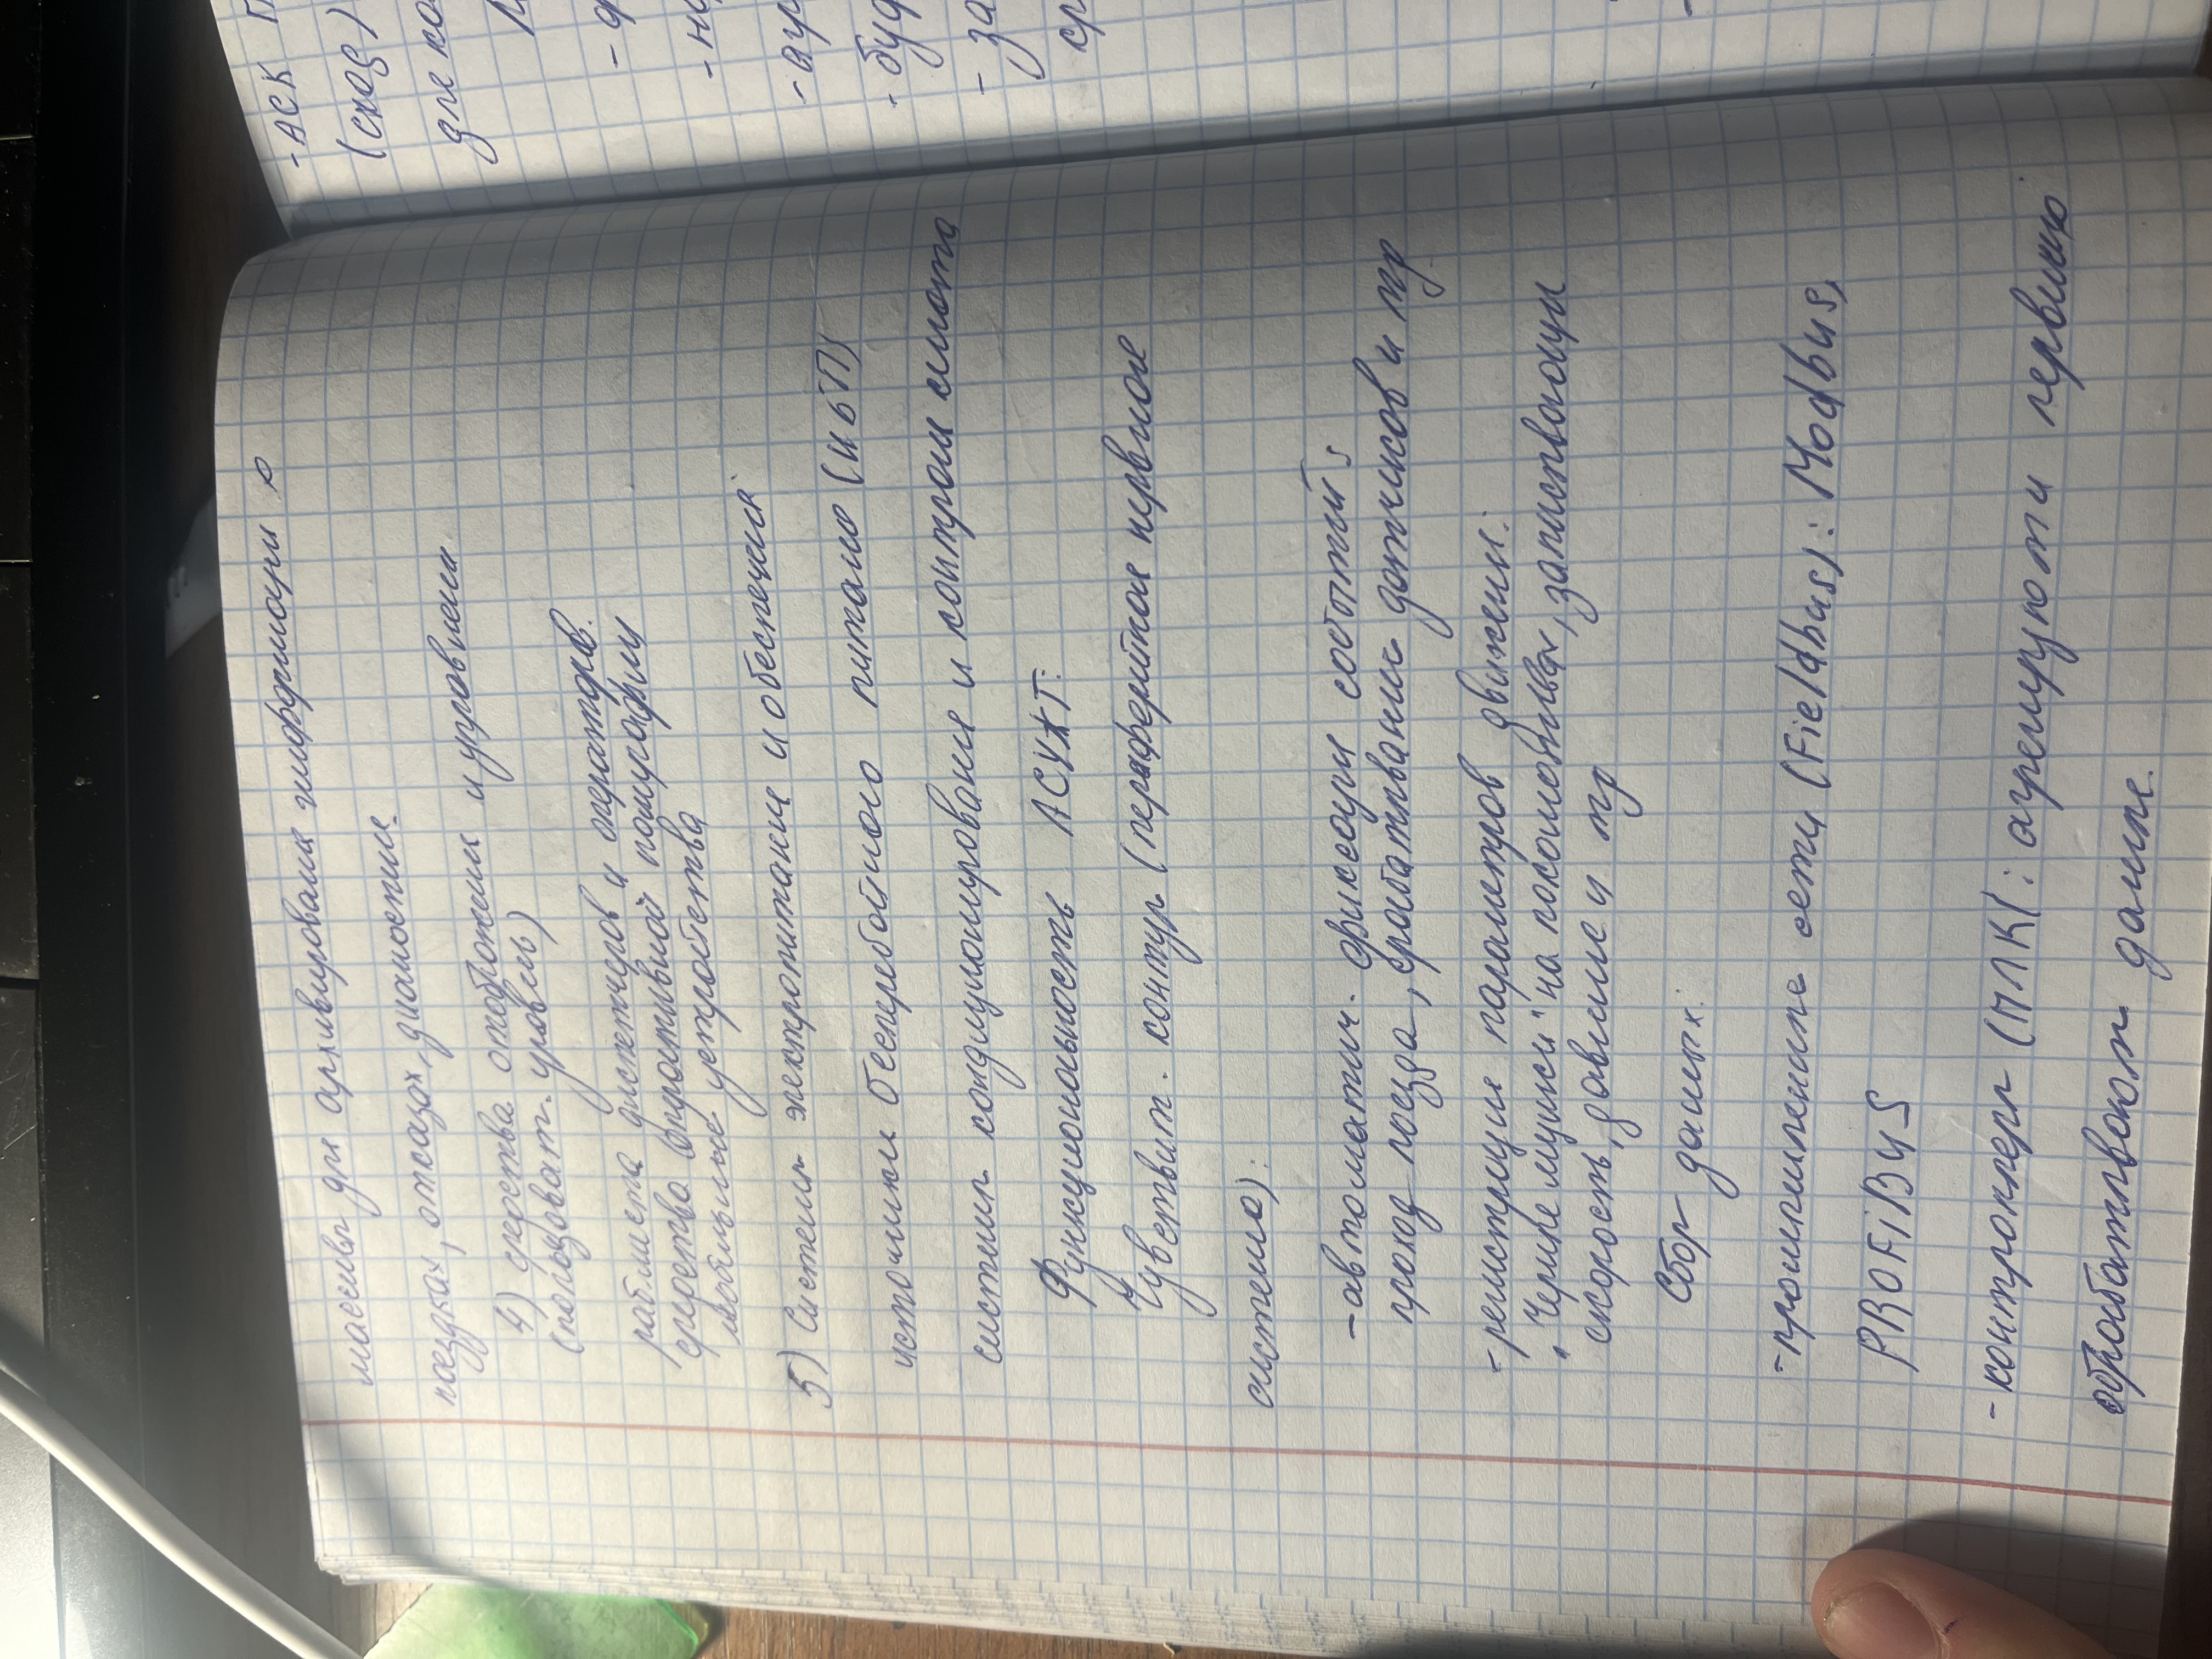 массивы для архивирования информации о
поездах, отказах, диагностике.
4) средства отображения и управления
(пользоват. уровень)
рабочие места диспетчеров и операторов.
средства оперативной полиграфии
мобильные устройства
5) Системы электропитание и обеспечения
источники бесперебойного питания (ИБП)
систем кондиционирования и контроля климата
Функциональность АСУЖТ:
Чувствит. контур (периферийное нервное
система):
-автоматич. фиксация событий:
проход поезда, срабатывание датчиков и пр
-регистрация параметров движения:
"Черные ящики" на локомотивах, записывающие
скорость, давление и пр
Сбор данных:
-промышленные сети (Fieldbus): Modbus,
PROFiBUS
-контроллеры (ПЛК): агрегируют и первично
обрабатывают данные.
-АСК П
(скоб)
для ко
- ф
- на
- аур
- буд
- за
ср